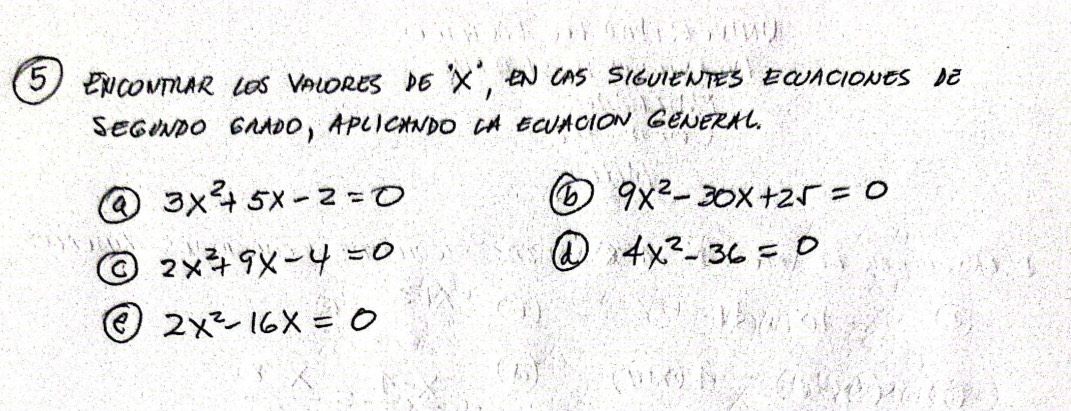 ⑤ ENCONTRAR LOS VALORES DE "X", EN LAS SIGUIENTES ECUACIONES DE
SEGUNDO GRADO, APLICANDO LA ECUACION GENERAL.
ⓐ 3x²+5x-2=0 ⓑ 9x²-30x+25=0
ⓒ 2x²+9x-4=0 ⓓ 4x²-36=0
ⓔ 2x²-16x=0